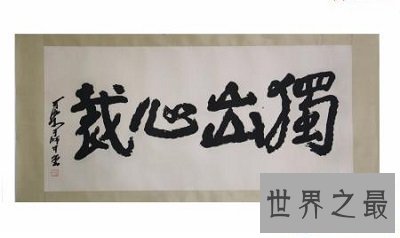 獨出心裁
世界之最